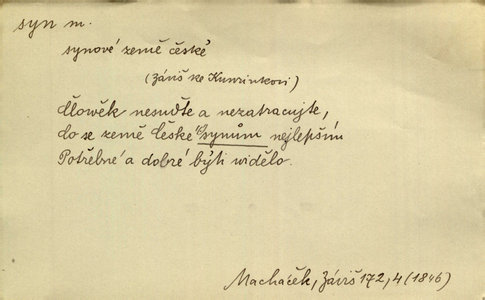 syn m.
synové země české
(Záviš ke Kunrinkovi)
Člowěk nesuďte a nezatracujte,
Co se země České synům nejlepším
Potřebné a dobré býti widělo.
Macháček, Záviš 172, 4 (1846)